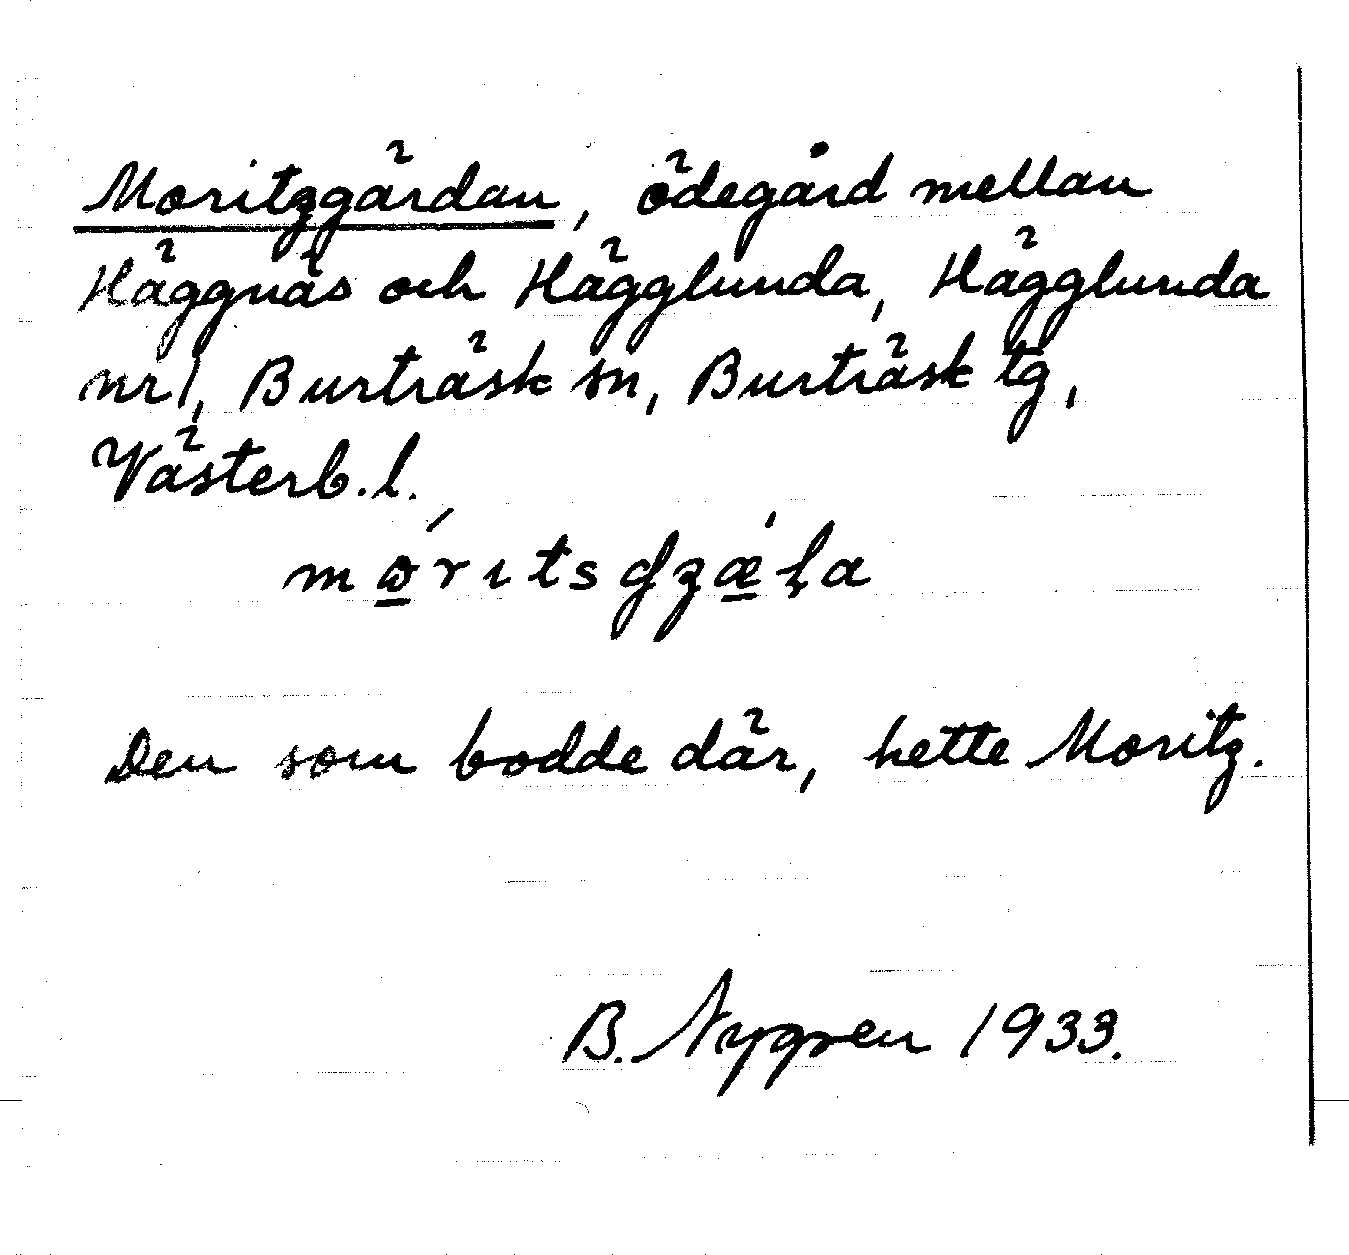 Moritzgärdan, ödegård mellan
Häggnäs och Hägglunda, Hägglunda
nr 1, Burträsk sn, Burträsk tg,
Västerb. l.
Den som bodde där, hette Moritz.
B. Nygren 1933.